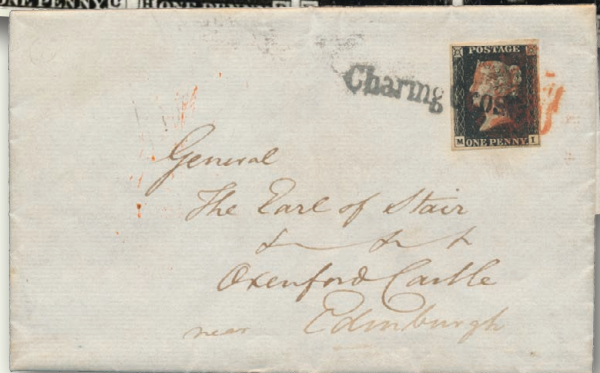 ONE PENNY
ONE PENNY
Charing Cross
POSTAGE
M ONE PENNY I
General
The Earl of Stair
& & &
Oxenford Castle
near Edinburgh